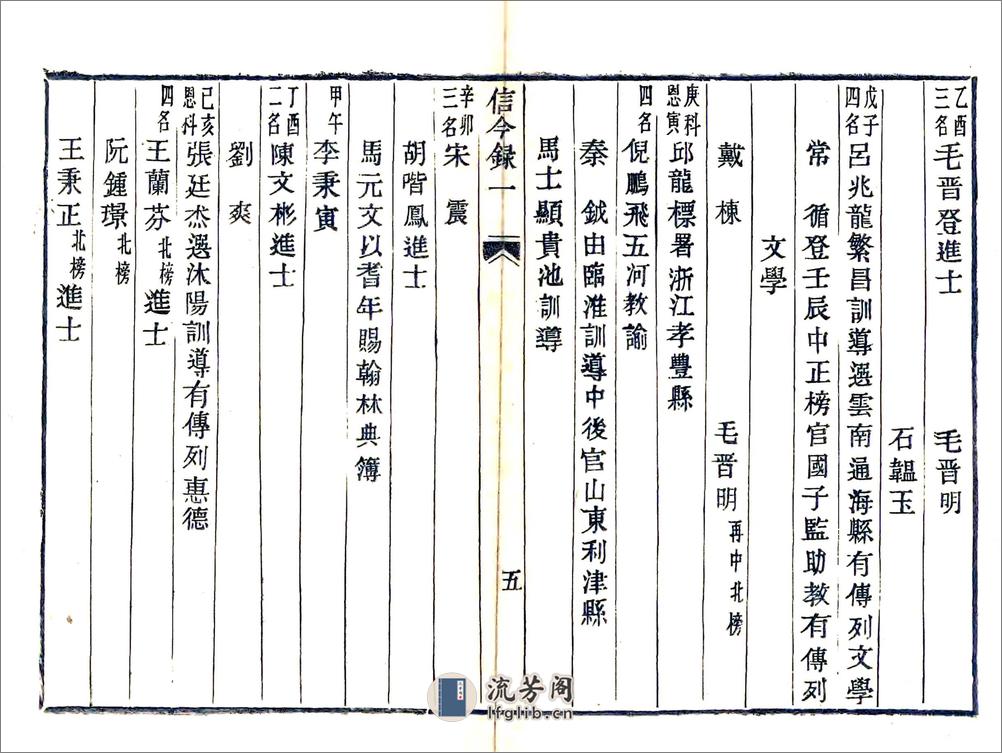 乙酉三名 毛晋登進士 毛晋明
石韞玉
戊子四名 呂兆龍繁昌訓導選雲南通海縣有傳列文學
常循登壬辰中正榜官國子監助教有傳列
文學
戴棟 毛晋明再中北榜
庚寅恩科 邱龍標署浙江孝豐縣
四名 倪鵬飛五河教諭
秦鉞由臨淮訓導中後官山東利津縣
馬士顯貴池訓導
信今録一 五
辛卯三名 宋震
胡階鳳進士
馬元文以耆年賜翰林典簿
甲午 李秉寅
丁酉二名 陳文彬進士
劉爽
己亥恩科 張廷杰選沭陽訓導有傳列惠德
四名 王蘭芬北榜進士
阮鍾璟北榜
王秉正北榜進士
流芳閣
lfglib.cn